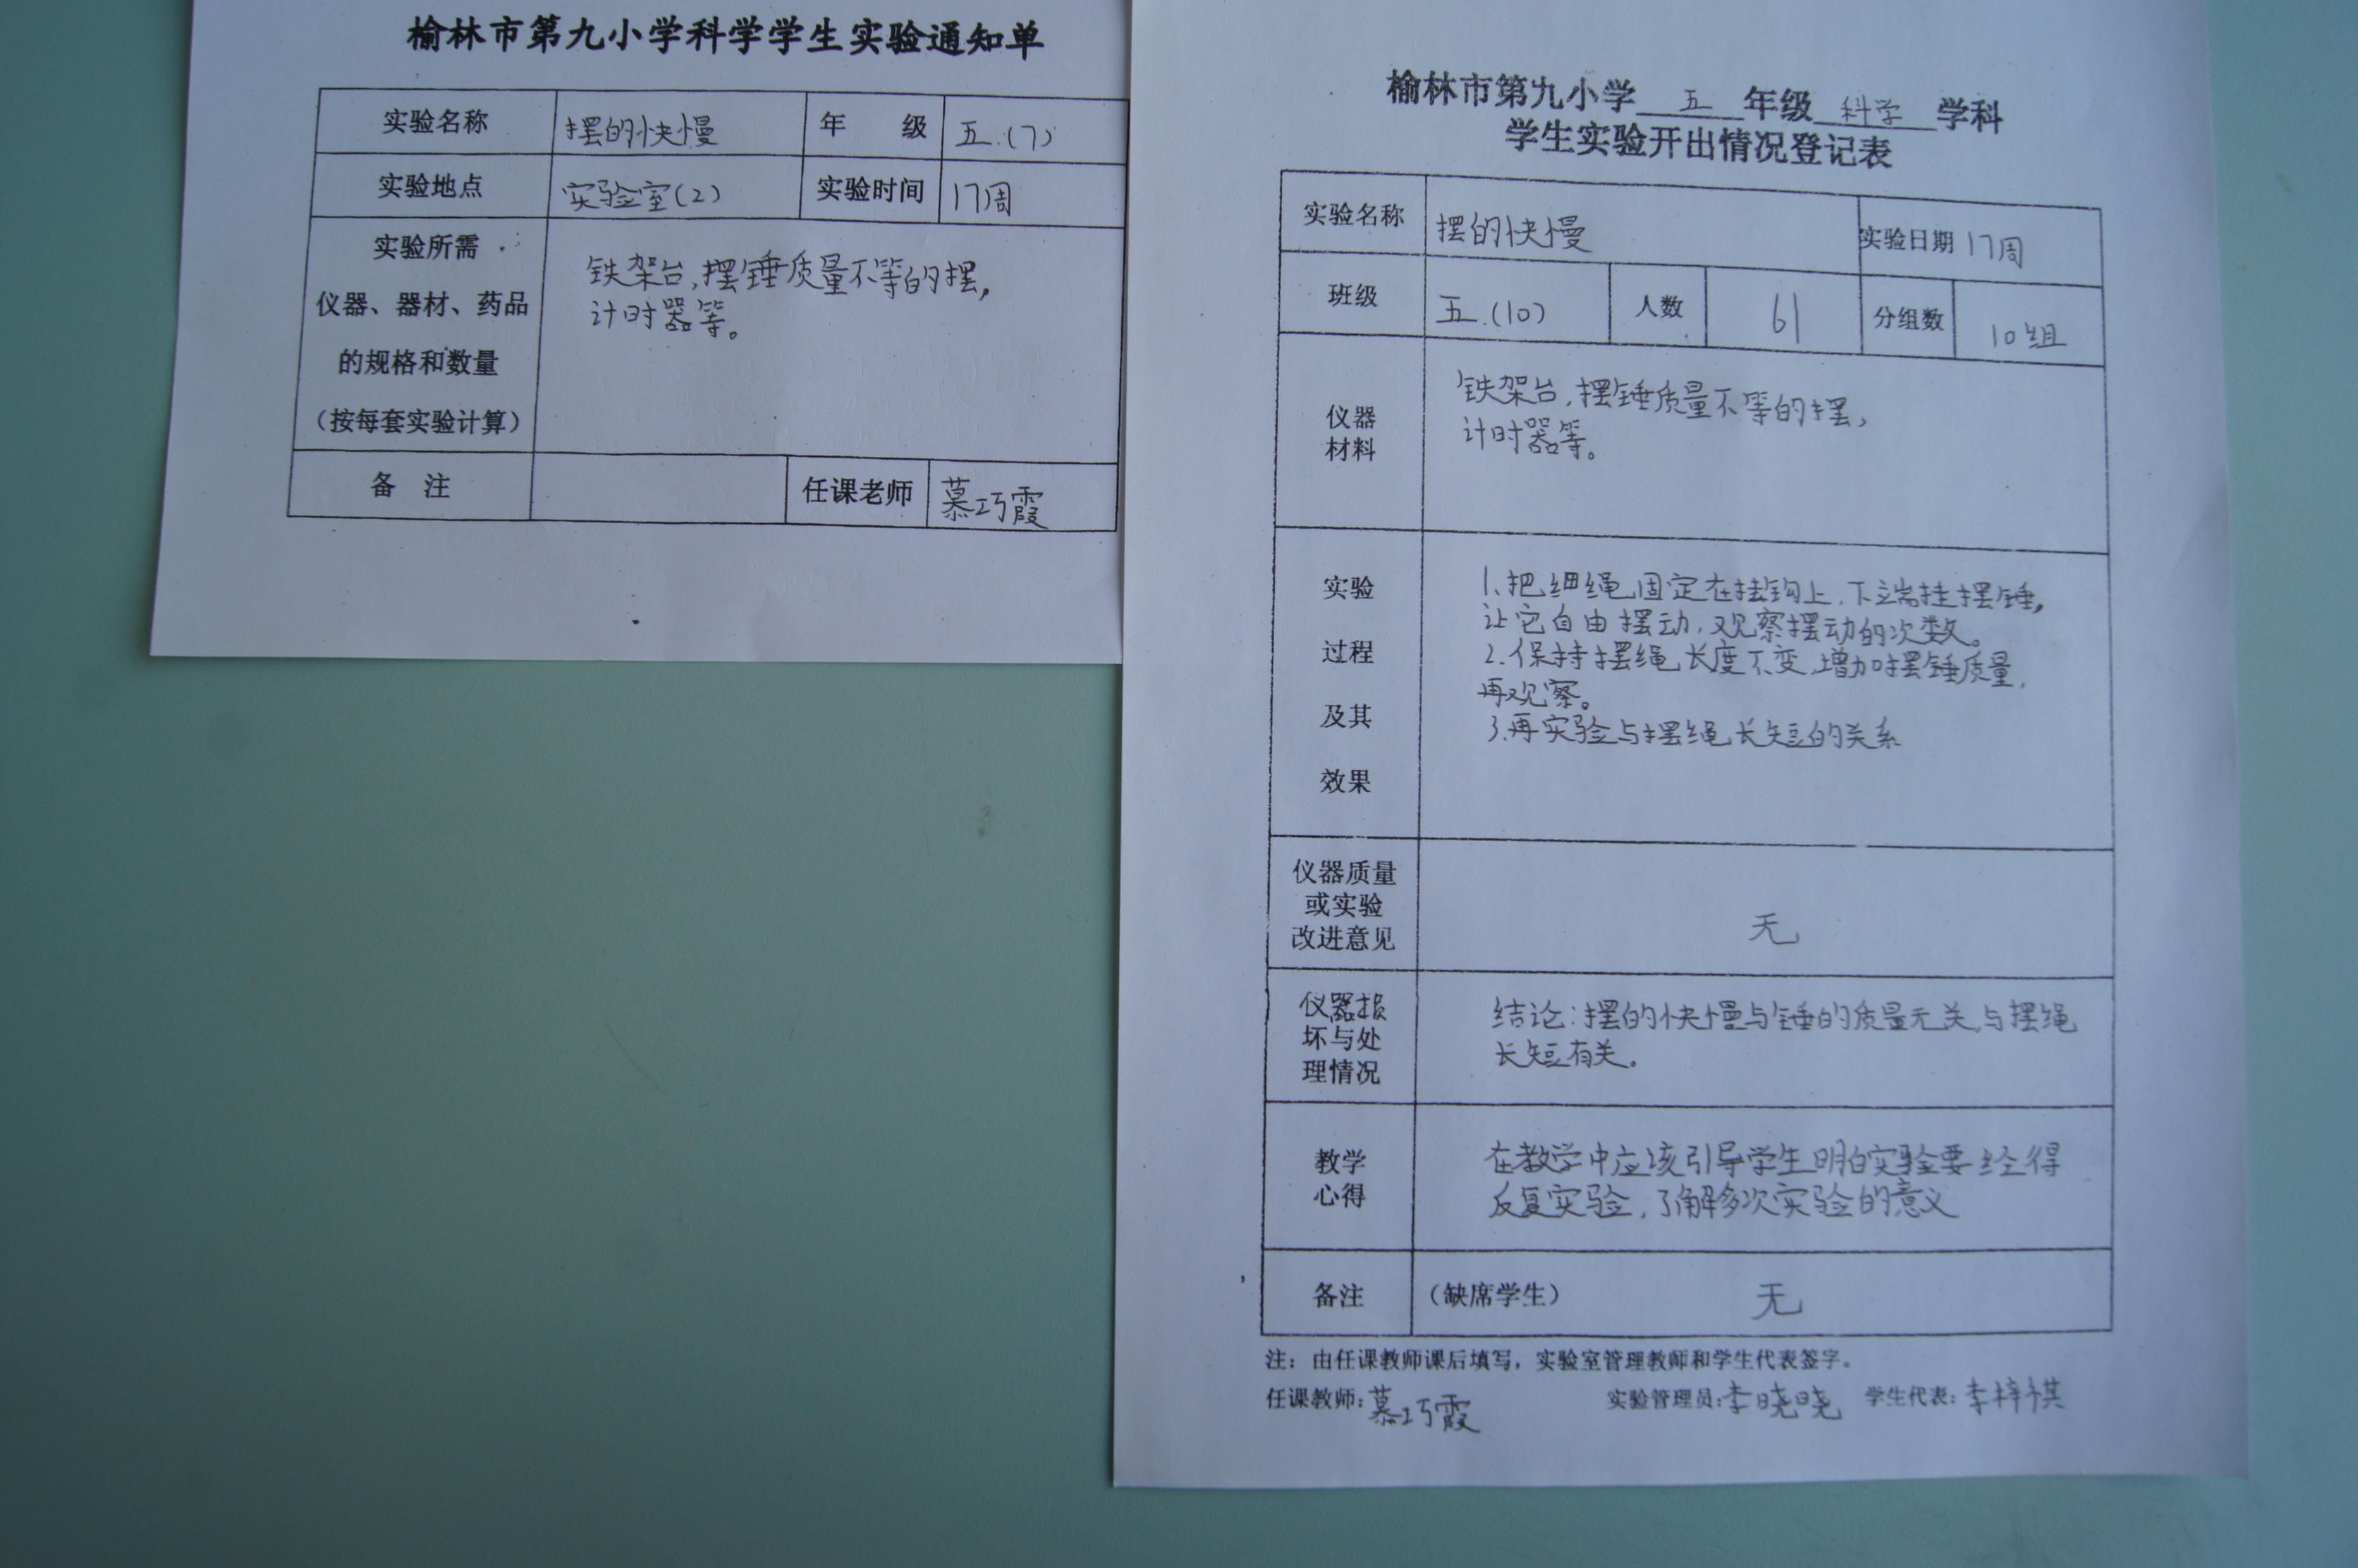 榆林市第九小学科学学生实验通知单
实验名称 摆的快慢 年 级 五.(7)
实验地点 实验室(2) 实验时间 17周
实验所需
仪器、器材、药品
的规格和数量
(按每套实验计算)
铁架台,摆锤质量不等的摆,
计时器等。
备 注 任课老师 慕巧霞
榆林市第九小学 五 年级 科学 学科
学生实验开出情况登记表
实验名称 摆的快慢 实验日期 17周
班级 五.(10) 人数 61 分组数 10组
仪器
材料
铁架台,摆锤质量不等的摆,
计时器等。
实验
过程
及其
效果
1.把细绳固定在挂钩上,下端挂摆锤,
让它自由摆动,观察摆动的次数。
2.保持摆绳长度不变,增加摆锤质量,
再观察。
3.再实验与摆绳长短的关系
仪器质量
或实验
改进意见
无
仪器损
坏与处
理情况
结论:摆的快慢与锤的质量无关,与摆绳
长短有关。
教学
心得
在教学中应该引导学生明白实验要经得
反复实验,了解多次实验的意义
备注 (缺席学生) 无
注:由任课教师课后填写,实验室管理教师和学生代表签字。
任课教师:慕巧霞 实验管理员:李晓晓 学生代表:李梓祺